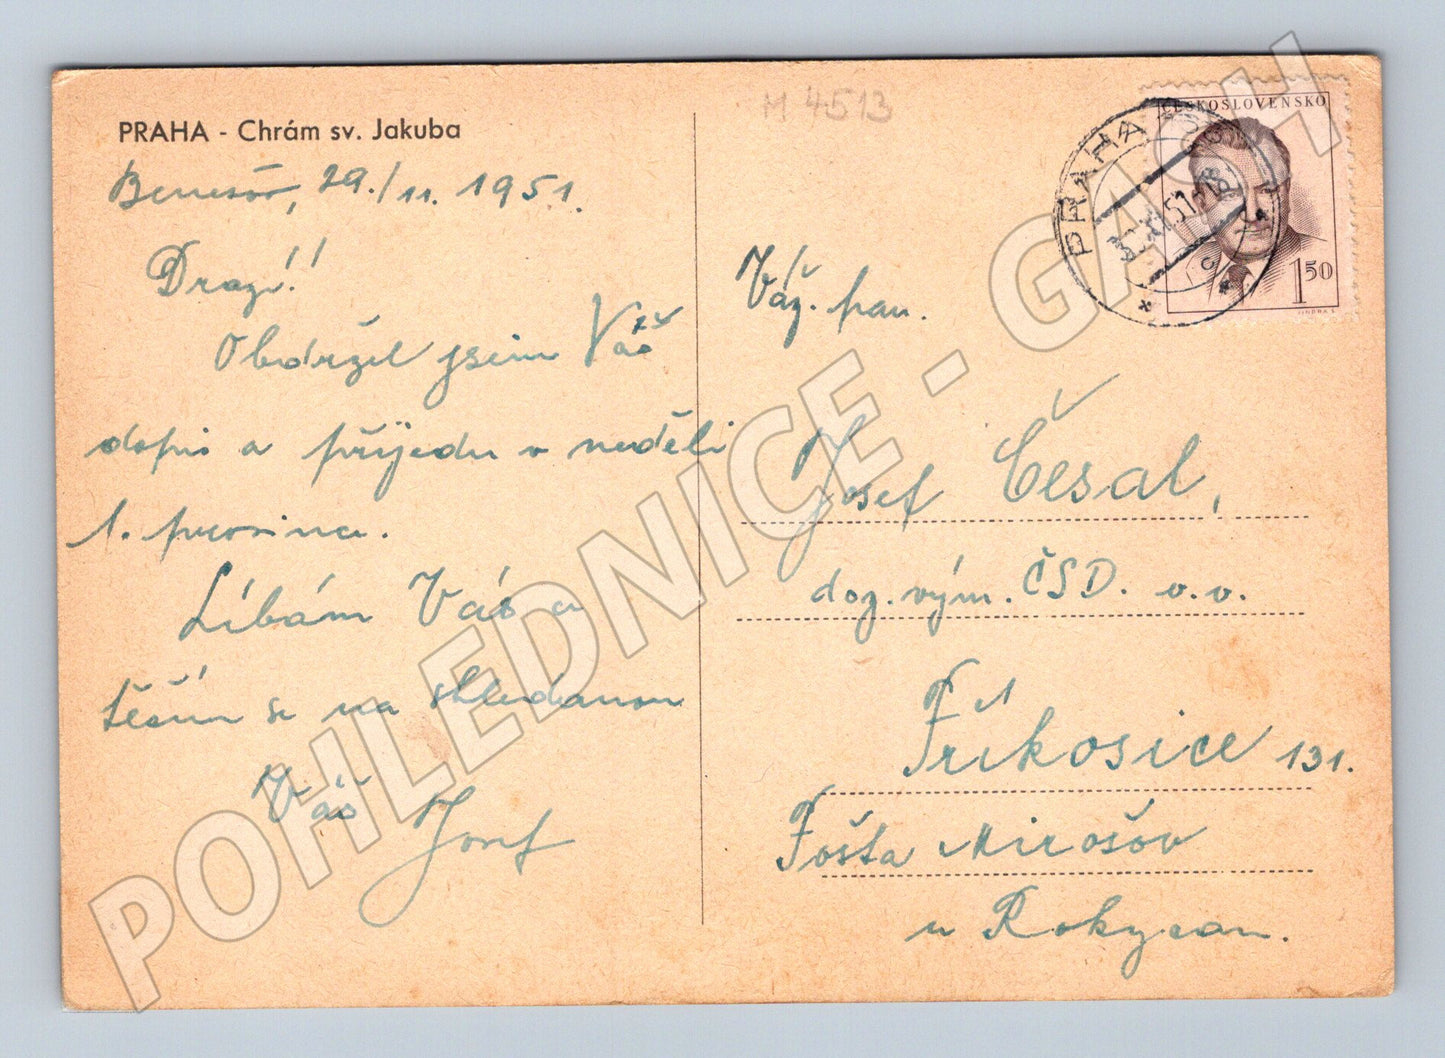 M 4513
PRAHA - Chrám sv. Jakuba
Benešov, 29./11. 1951.
Drazí!
Obdržel jsem Váš
dopis a přijedu v neděli
1. prosince.
Líbám Vás a
těším se na shledanou
Váš Josef
ČESKOSLOVENSKO
1 50
JINDRA S.
PRAHA
Váž. pan.
Josef Česal,
doz. vým. ČSD. v. v.
Příkosice 131.
Pošta Mirošov
u Rokycan.
POHLEDNICE - GASCH